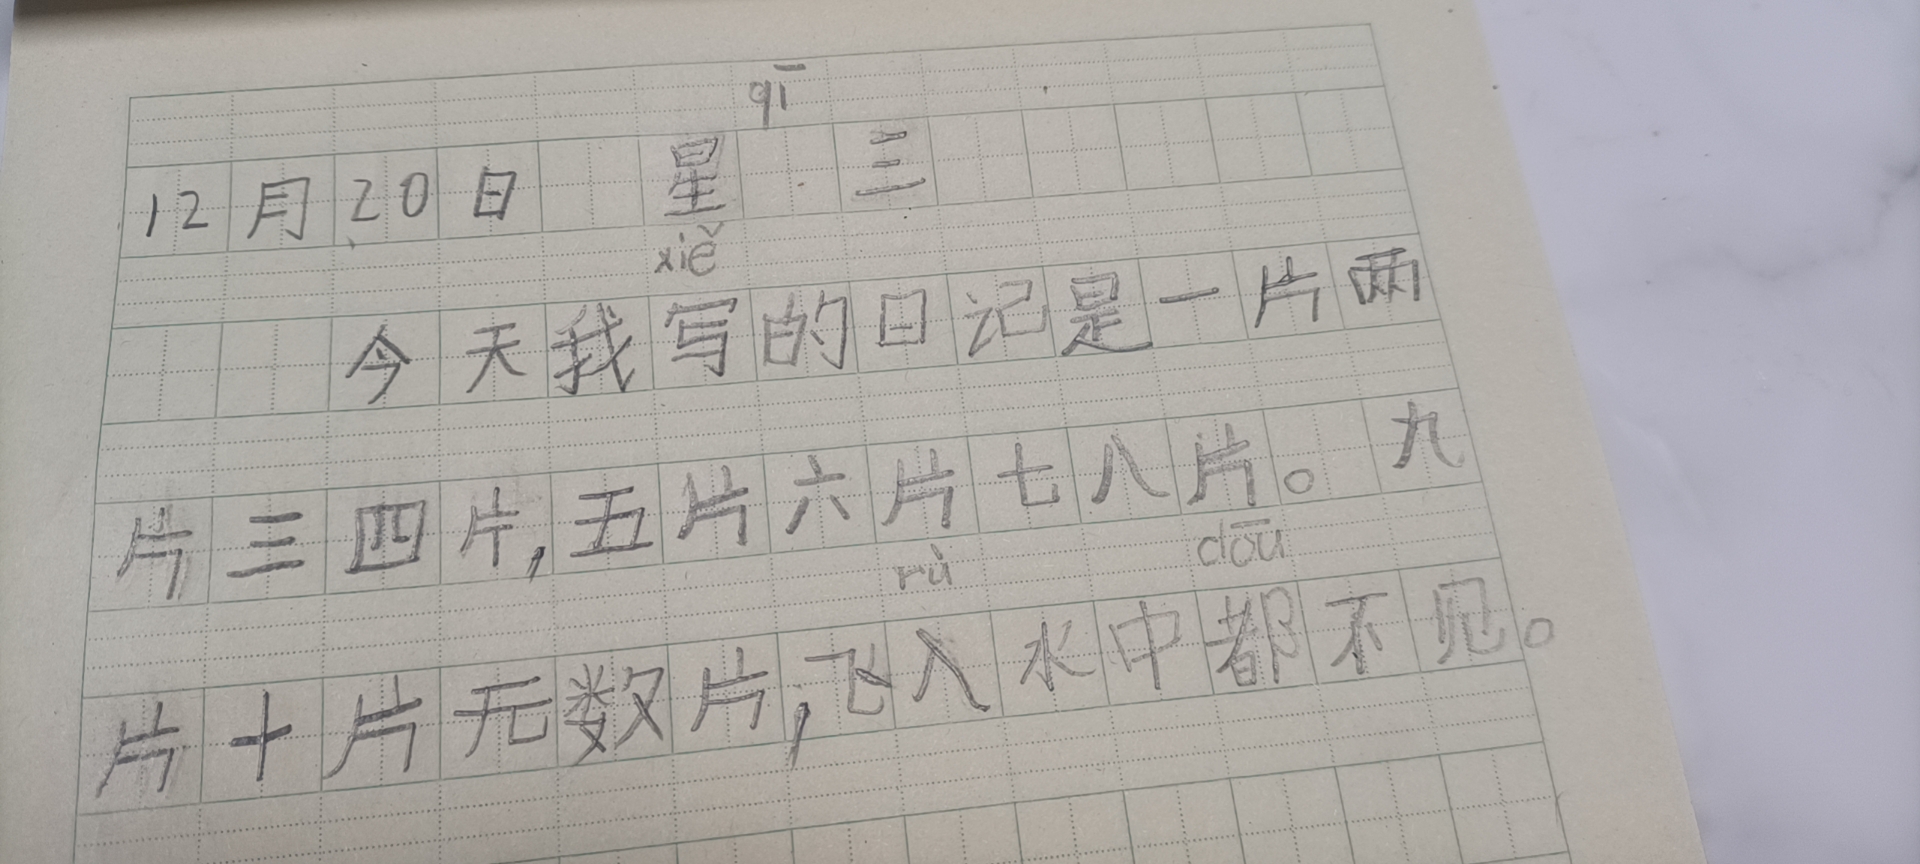 qī
12月20日 星 三
xiě
今天我写的日记是一片两
片三四片,五片六片七八片。九
rù dōu
片十片无数片,飞入水中都不见。